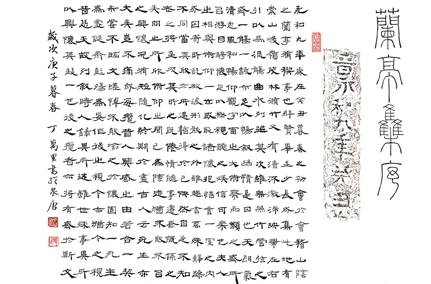 蘭亭雧序
晉永和九年癸丑
永和九年歲在癸丑暮春之初會于會稽山陰
之蘭亭脩禊事也群賢畢至少長咸集此地有
崇山峻領茂林脩竹又有清流激湍暎帶左右
引以為流觴曲水列坐其次雖無絲竹管弦之
盛一觴一詠亦足以暢敘幽情是日也天朗氣
清惠風和暢仰觀宇宙之大俯察品類之盛所
以遊目騁懷足以極視聽之娛信可樂也夫人
之相與俯仰一世或取諸懷抱悟言一室之內
或因寄所託放浪形骸之外雖趣舍萬殊靜躁
不同當其欣於所遇暫得於己快然自足不知
老之將至及其所之既惓情隨事遷感慨係之
矣向之所欣俛仰之間已為陳跡猶不能不以
之興懷況脩短隨化終期於盡古人云死生亦
大矣豈不痛哉每攬昔人興感之由若合一契
未嘗不臨文嗟悼不能喻之於懷固知一死生
為虛誕齊彭殤為妄作後之視今亦由今之視
昔悲夫故列敘時人錄其所述雖世殊事異所
以興懷其致一也後之覽者亦將有感於斯文
歲次庚子暮春 丁萬里書於泉唐